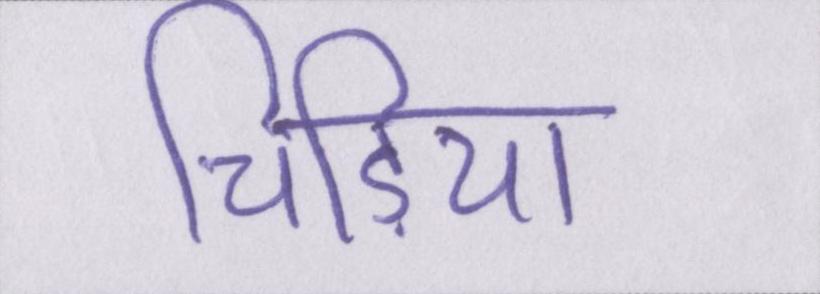 चिड़िया